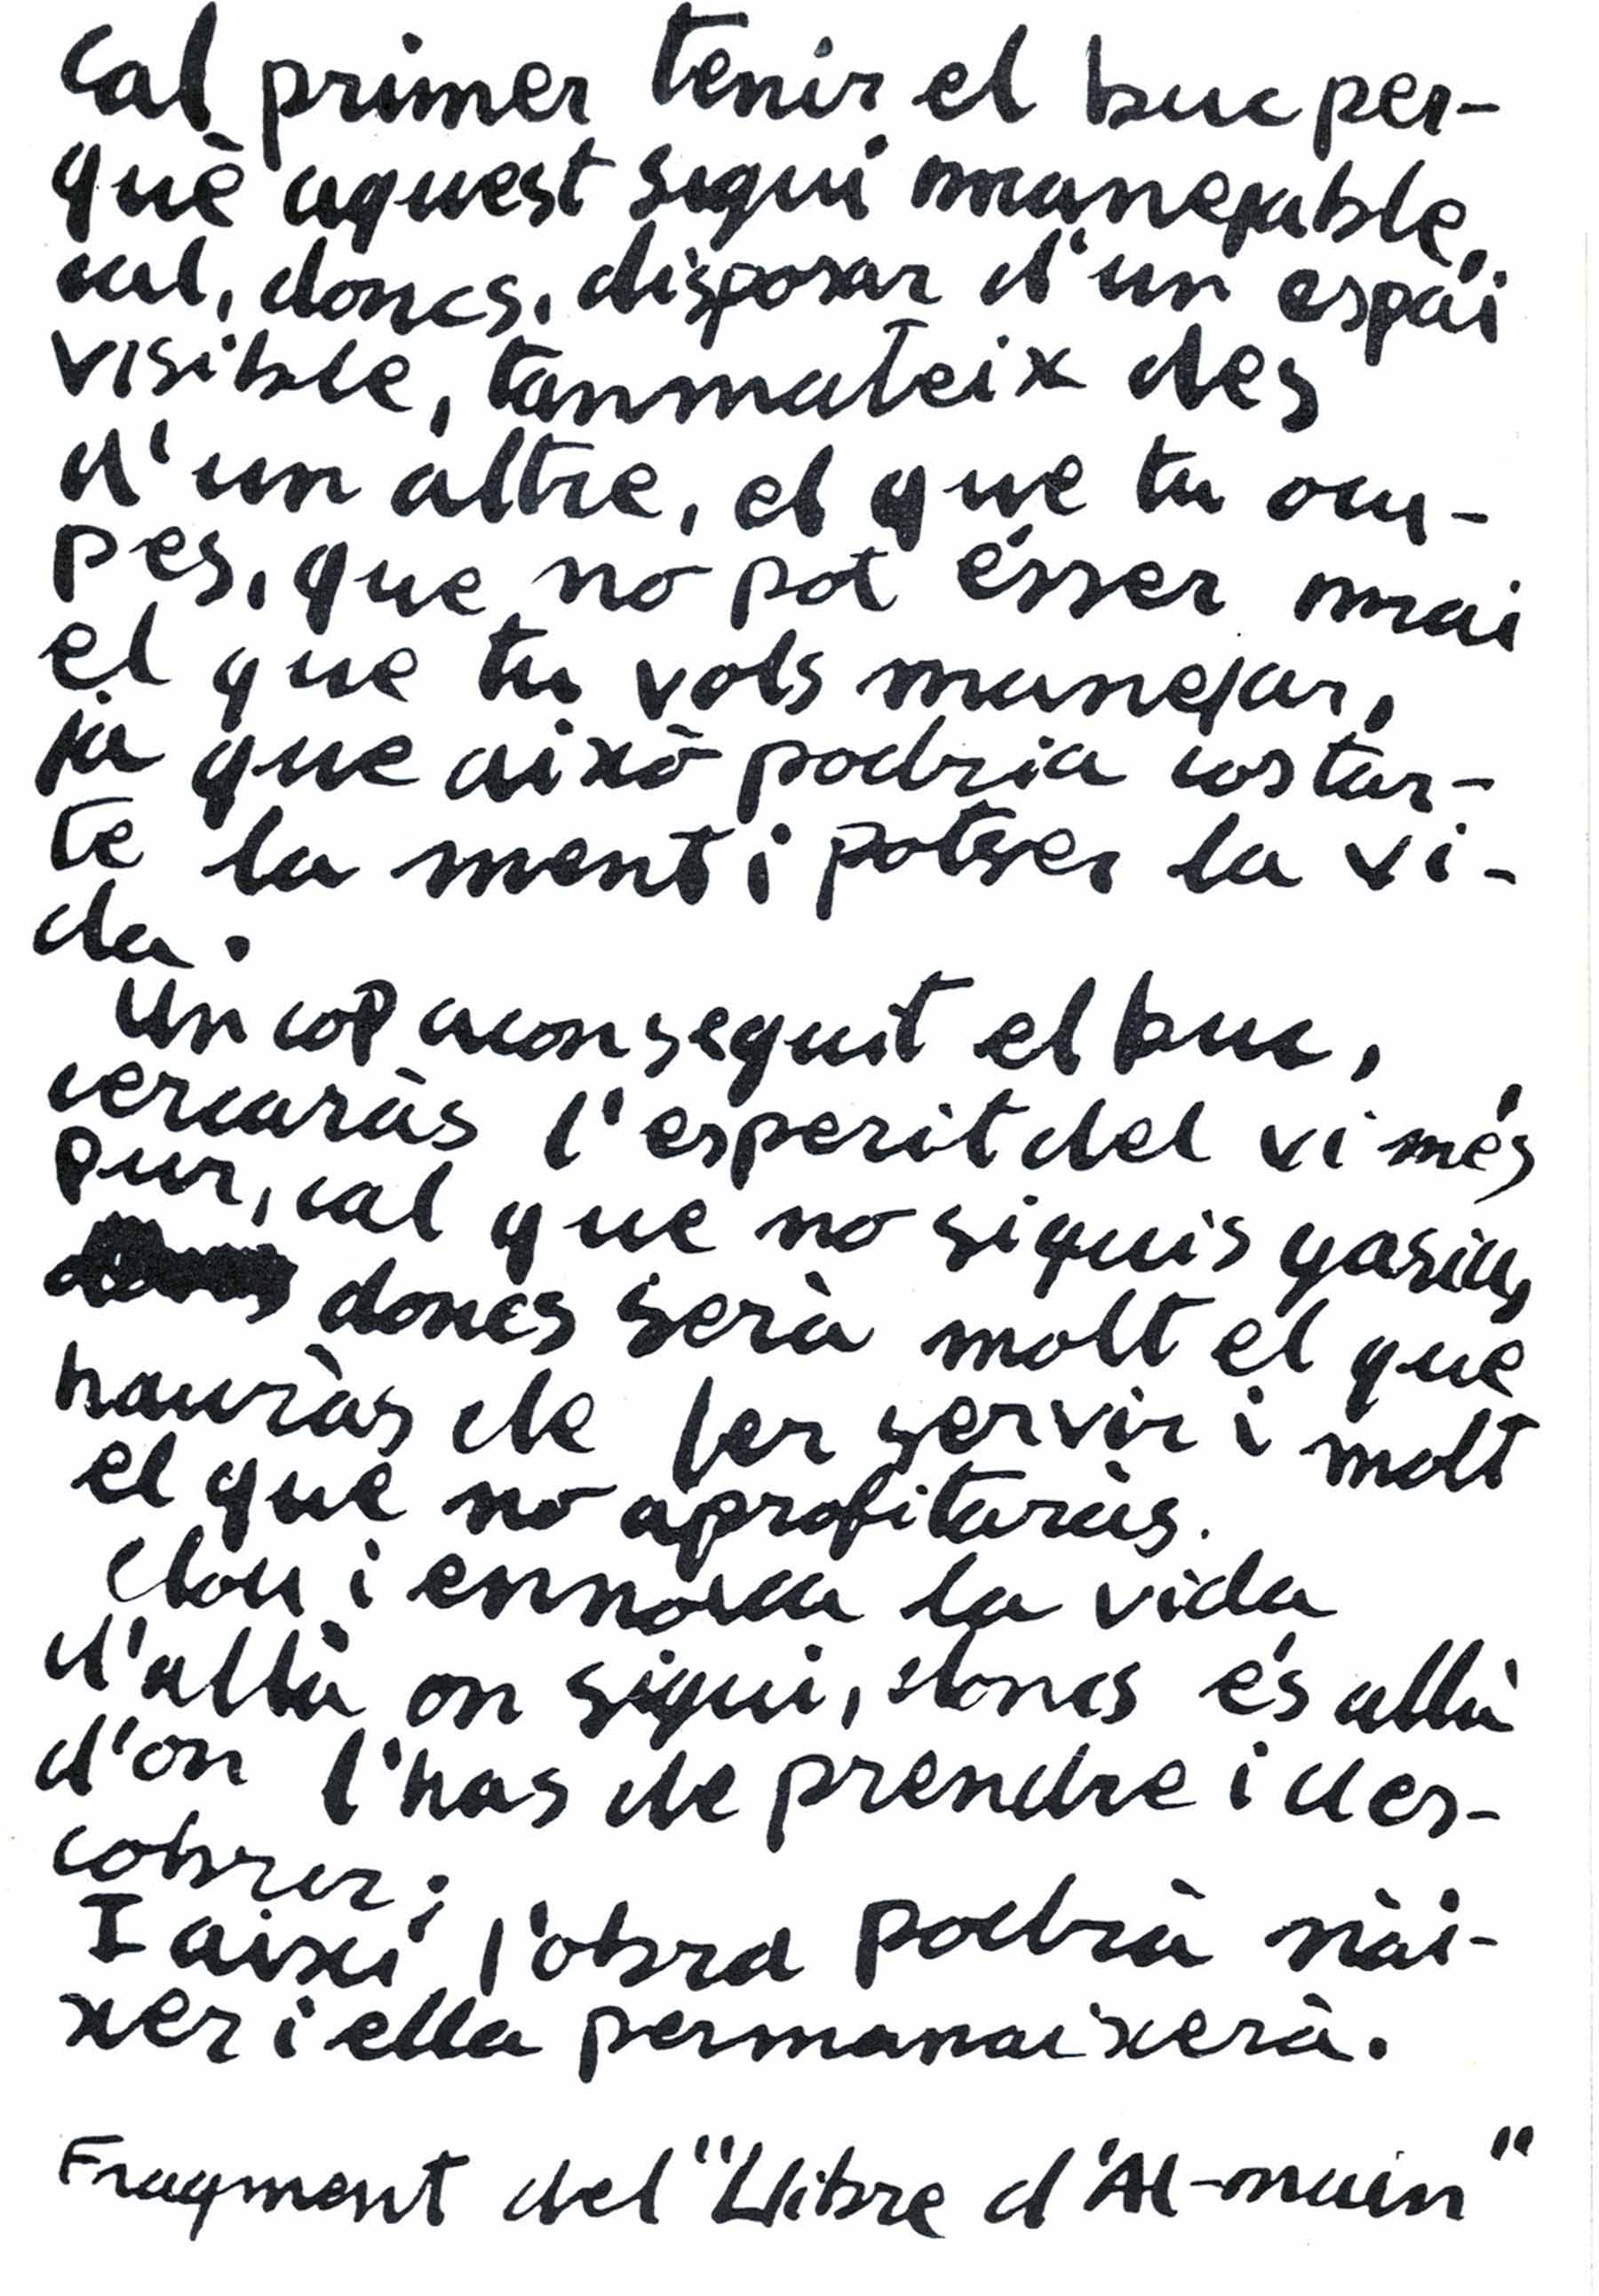 Cal primer tenir el buc per-
què aquest sigui manejable,
cal, doncs, disposar d'un espai
visible, tanmateix des
d'un altre, el que tu ocu-
pes, que no pot ésser mai
el que tu vols manejar,
ja que això podria costar-
te la ment i potser la vi-
da.
Un cop aconseguit el buc,
cercaràs l'esperit del vi més
pur, cal que no siguis gasiu,
doncs serà molt el que
hauràs de fer servir i molt
el que no aprofitaràs.
Clou i ennova la vida
d'allà on sigui, doncs és allà
d'on l'has de prendre i des-
cobrir;
I així l'obra podrà nài-
xer i ella permanaixerà.
Fragment del "Llibre d'Al-